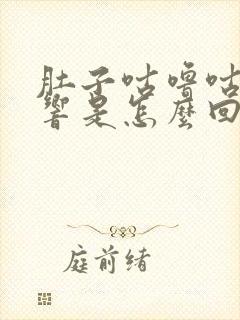 肚子咕噜咕
響是怎麼回
庭前绪